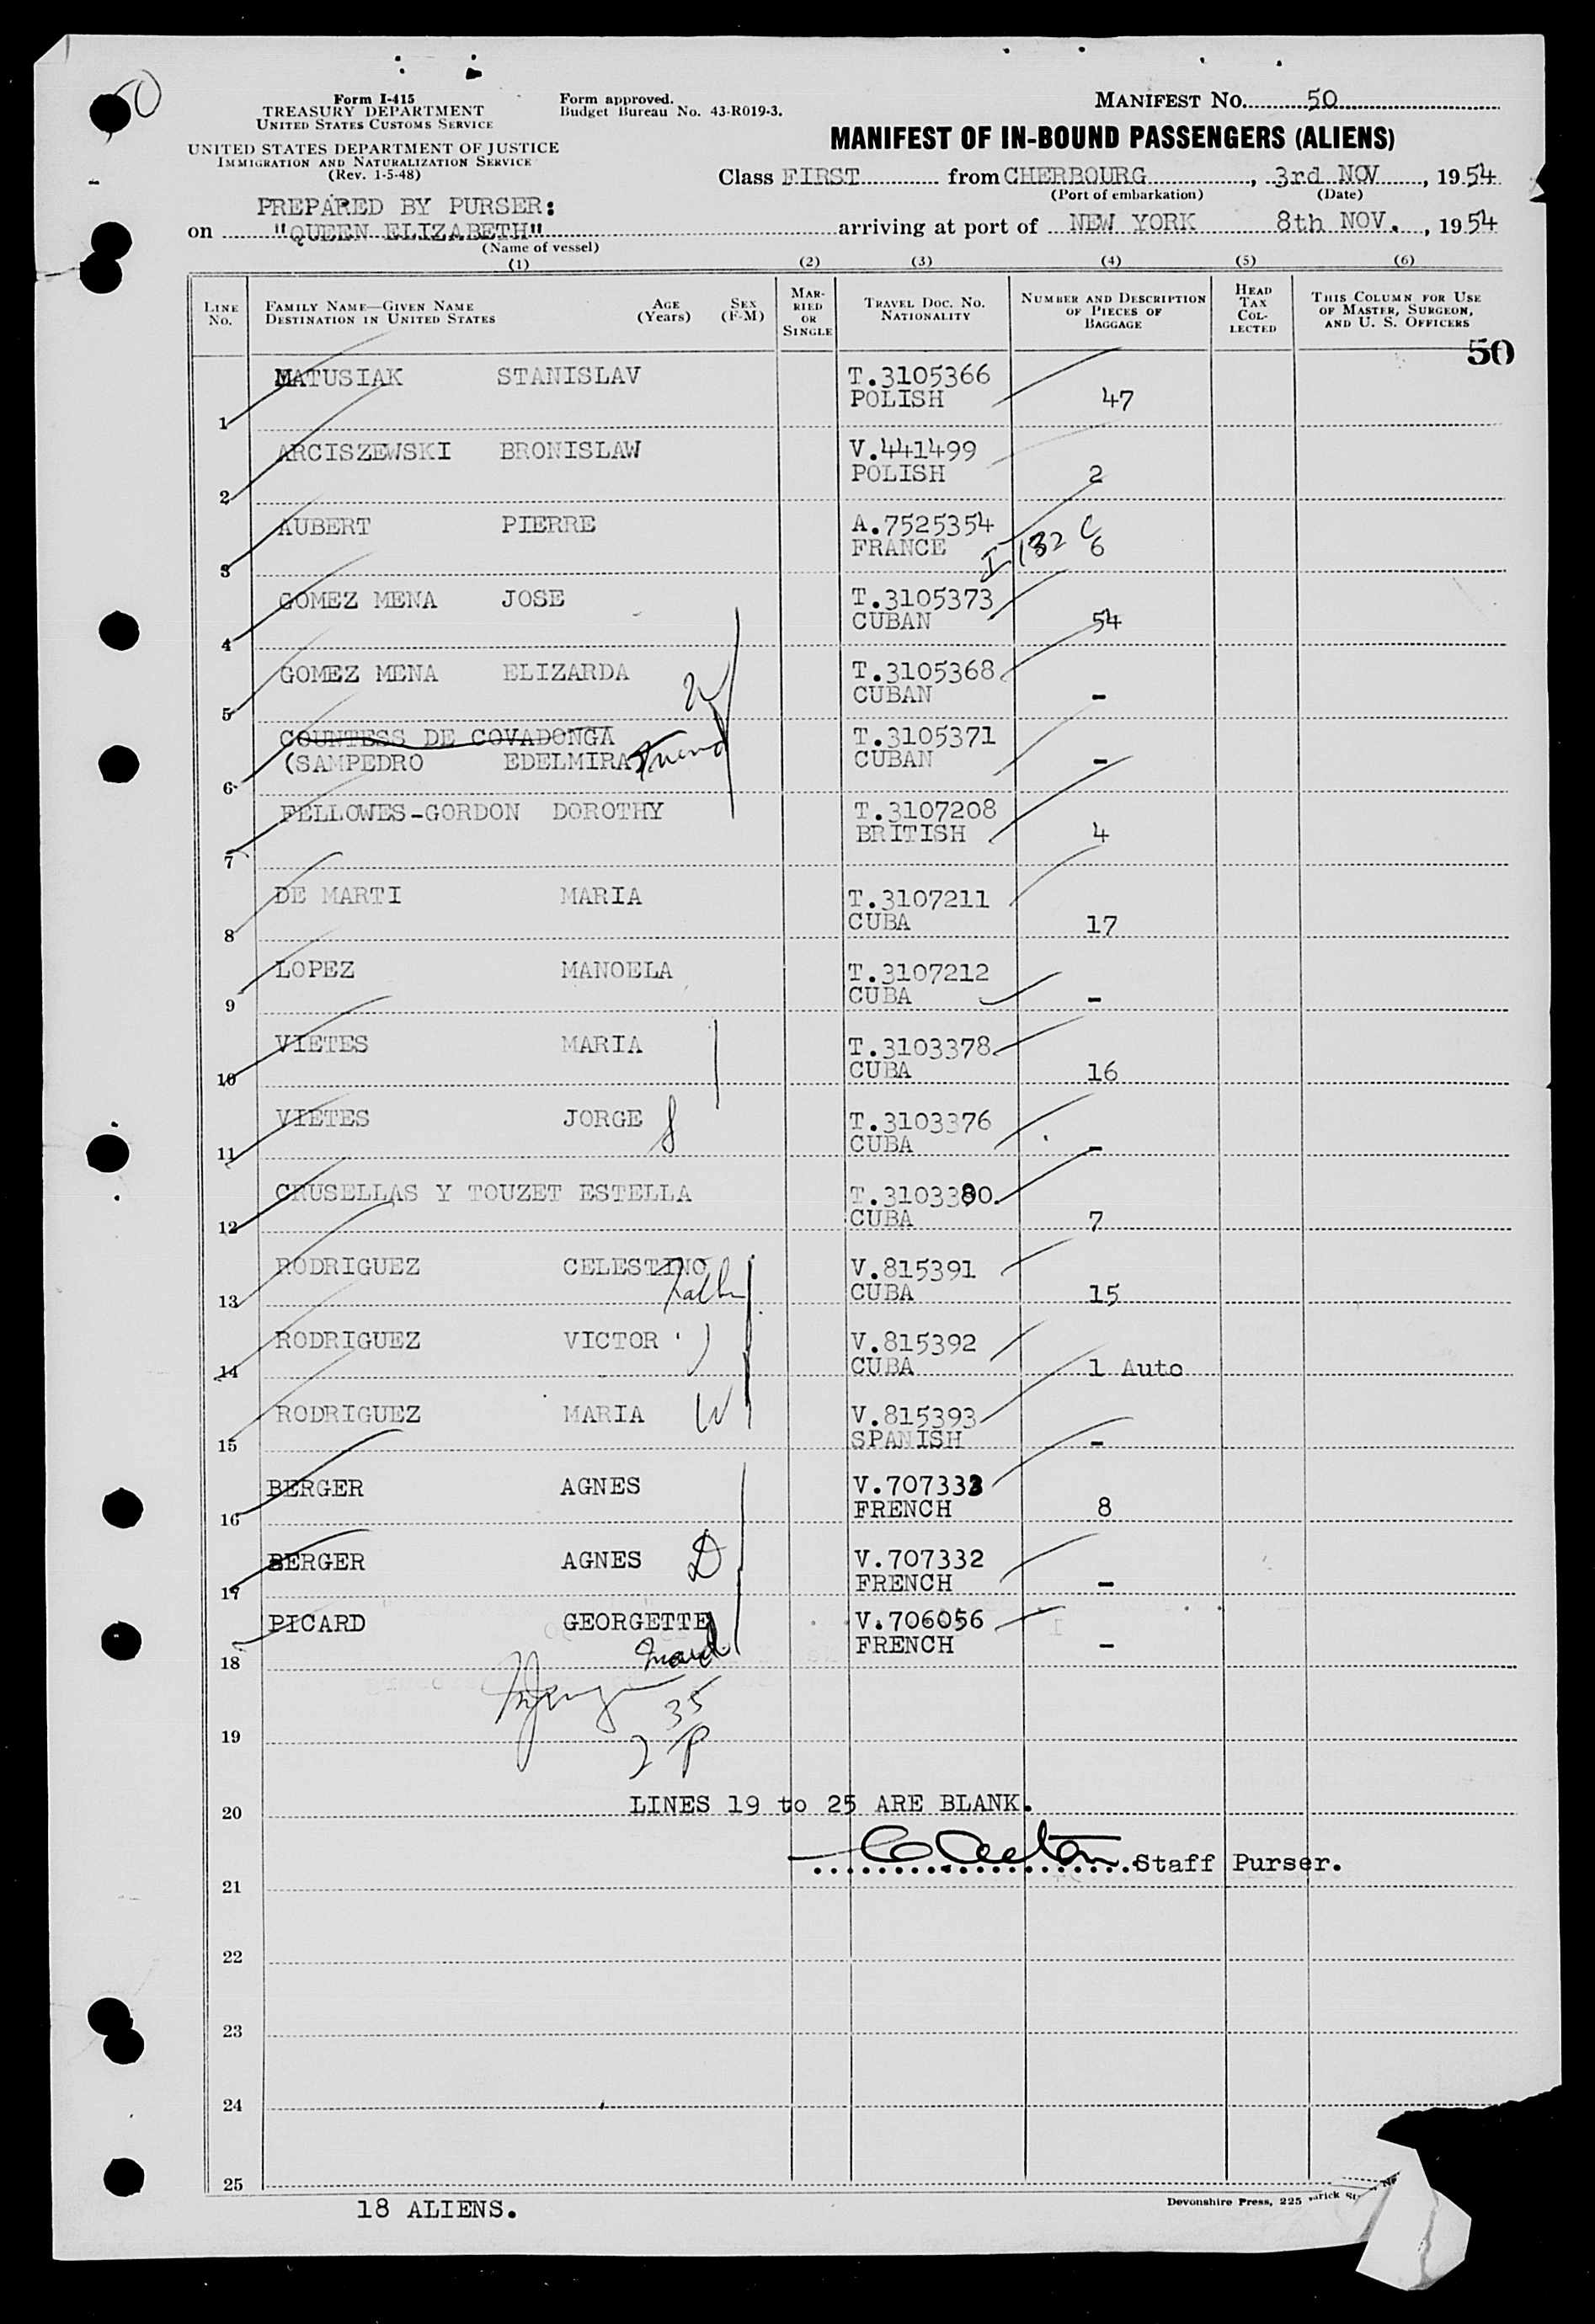 50
Form I-415
TREASURY DEPARTMENT
UNITED STATES CUSTOMS SERVICE
UNITED STATES DEPARTMENT OF JUSTICE
IMMIGRATION AND NATURALIZATION SERVICE
(Rev. 1-5-48)
Form approved.
Budget Bureau No. 43-R019-3.
MANIFEST NO. 50
MANIFEST OF IN-BOUND PASSENGERS (ALIENS)
Class FIRST from CHERBOURG, 3rd NOV, 1954
(Port of embarkation) (Date)
PREPARED BY PURSER:
on "QUEEN ELIZABETH" arriving at port of NEW YORK 8th NOV., 1954
(Name of vessel)
(1) (2) (3) (4) (5) (6)
LINE NO. FAMILY NAME—GIVEN NAME DESTINATION IN UNITED STATES AGE (Years) SEX (F-M) MARRIED OR SINGLE TRAVEL DOC. NO. NATIONALITY NUMBER AND DESCRIPTION OF PIECES OF BAGGAGE HEAD TAX COLLECTED THIS COLUMN FOR USE OF MASTER, SURGEON, AND U. S. OFFICERS
50
MATUSIAK STANISLAV T.3105366
1 POLISH 47
ARCISZEWSKI BRONISLAW V.441499
2 POLISH 2
AUBERT PIERRE A.7525354
3 FRANCE I 132 C 6
GOMEZ MENA JOSE T.3105373
4 CUBAN 54
GOMEZ MENA ELIZARDA W T.3105368
5 CUBAN -
COUNTESS DE COVADONGA T.3105371
6 (SAMPEDRO EDELMIRA) Friend CUBAN -
FELLOWES-GORDON DOROTHY T.3107208
7 BRITISH 4
DE MARTI MARIA T.3107211
8 CUBA 17
LOPEZ MANOELA T.3107212
9 CUBA -
VIETES MARIA T.3103378
10 CUBA 16
VIETES JORGE S T.3103376
11 CUBA -
CRUSELLAS Y TOUZET ESTELLA T.3103380.
12 CUBA 7
RODRIGUEZ CELESTINO V.815391
13 Father CUBA 15
RODRIGUEZ VICTOR V.815392
14 CUBA 1 Auto
RODRIGUEZ MARIA W V.815393
15 SPANISH -
BERGER AGNES V.707333
16 FRENCH 8
BERGER AGNES D V.707332
17 FRENCH -
PICARD GEORGETTE V.706056
18 maid FRENCH -
35
19
20 LINES 19 to 25 ARE BLANK.
Staff Purser.
21
22
23
24
25
18 ALIENS.
Devonshire Press, 225